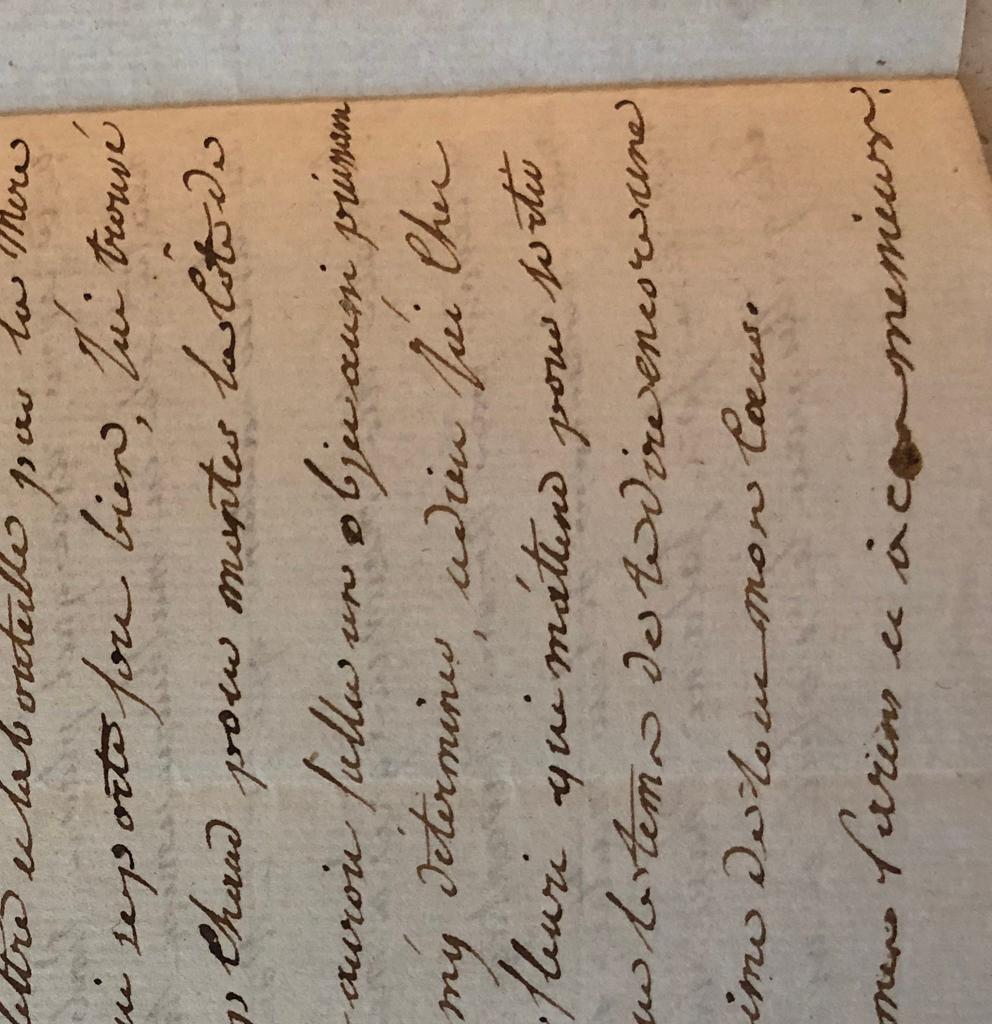 lettre et la bouteille par la Mere
qui se porte for bien, J'ai trouvé
Chaud pour monter la Cote de
auroit fallu un objet aussi puissan
m'y determiner, adieu J'ai Cheu
fleuri qui m'attend pour sortir
que le tems de te dire encore une
aime de tout mon Cœur.
mes ici a